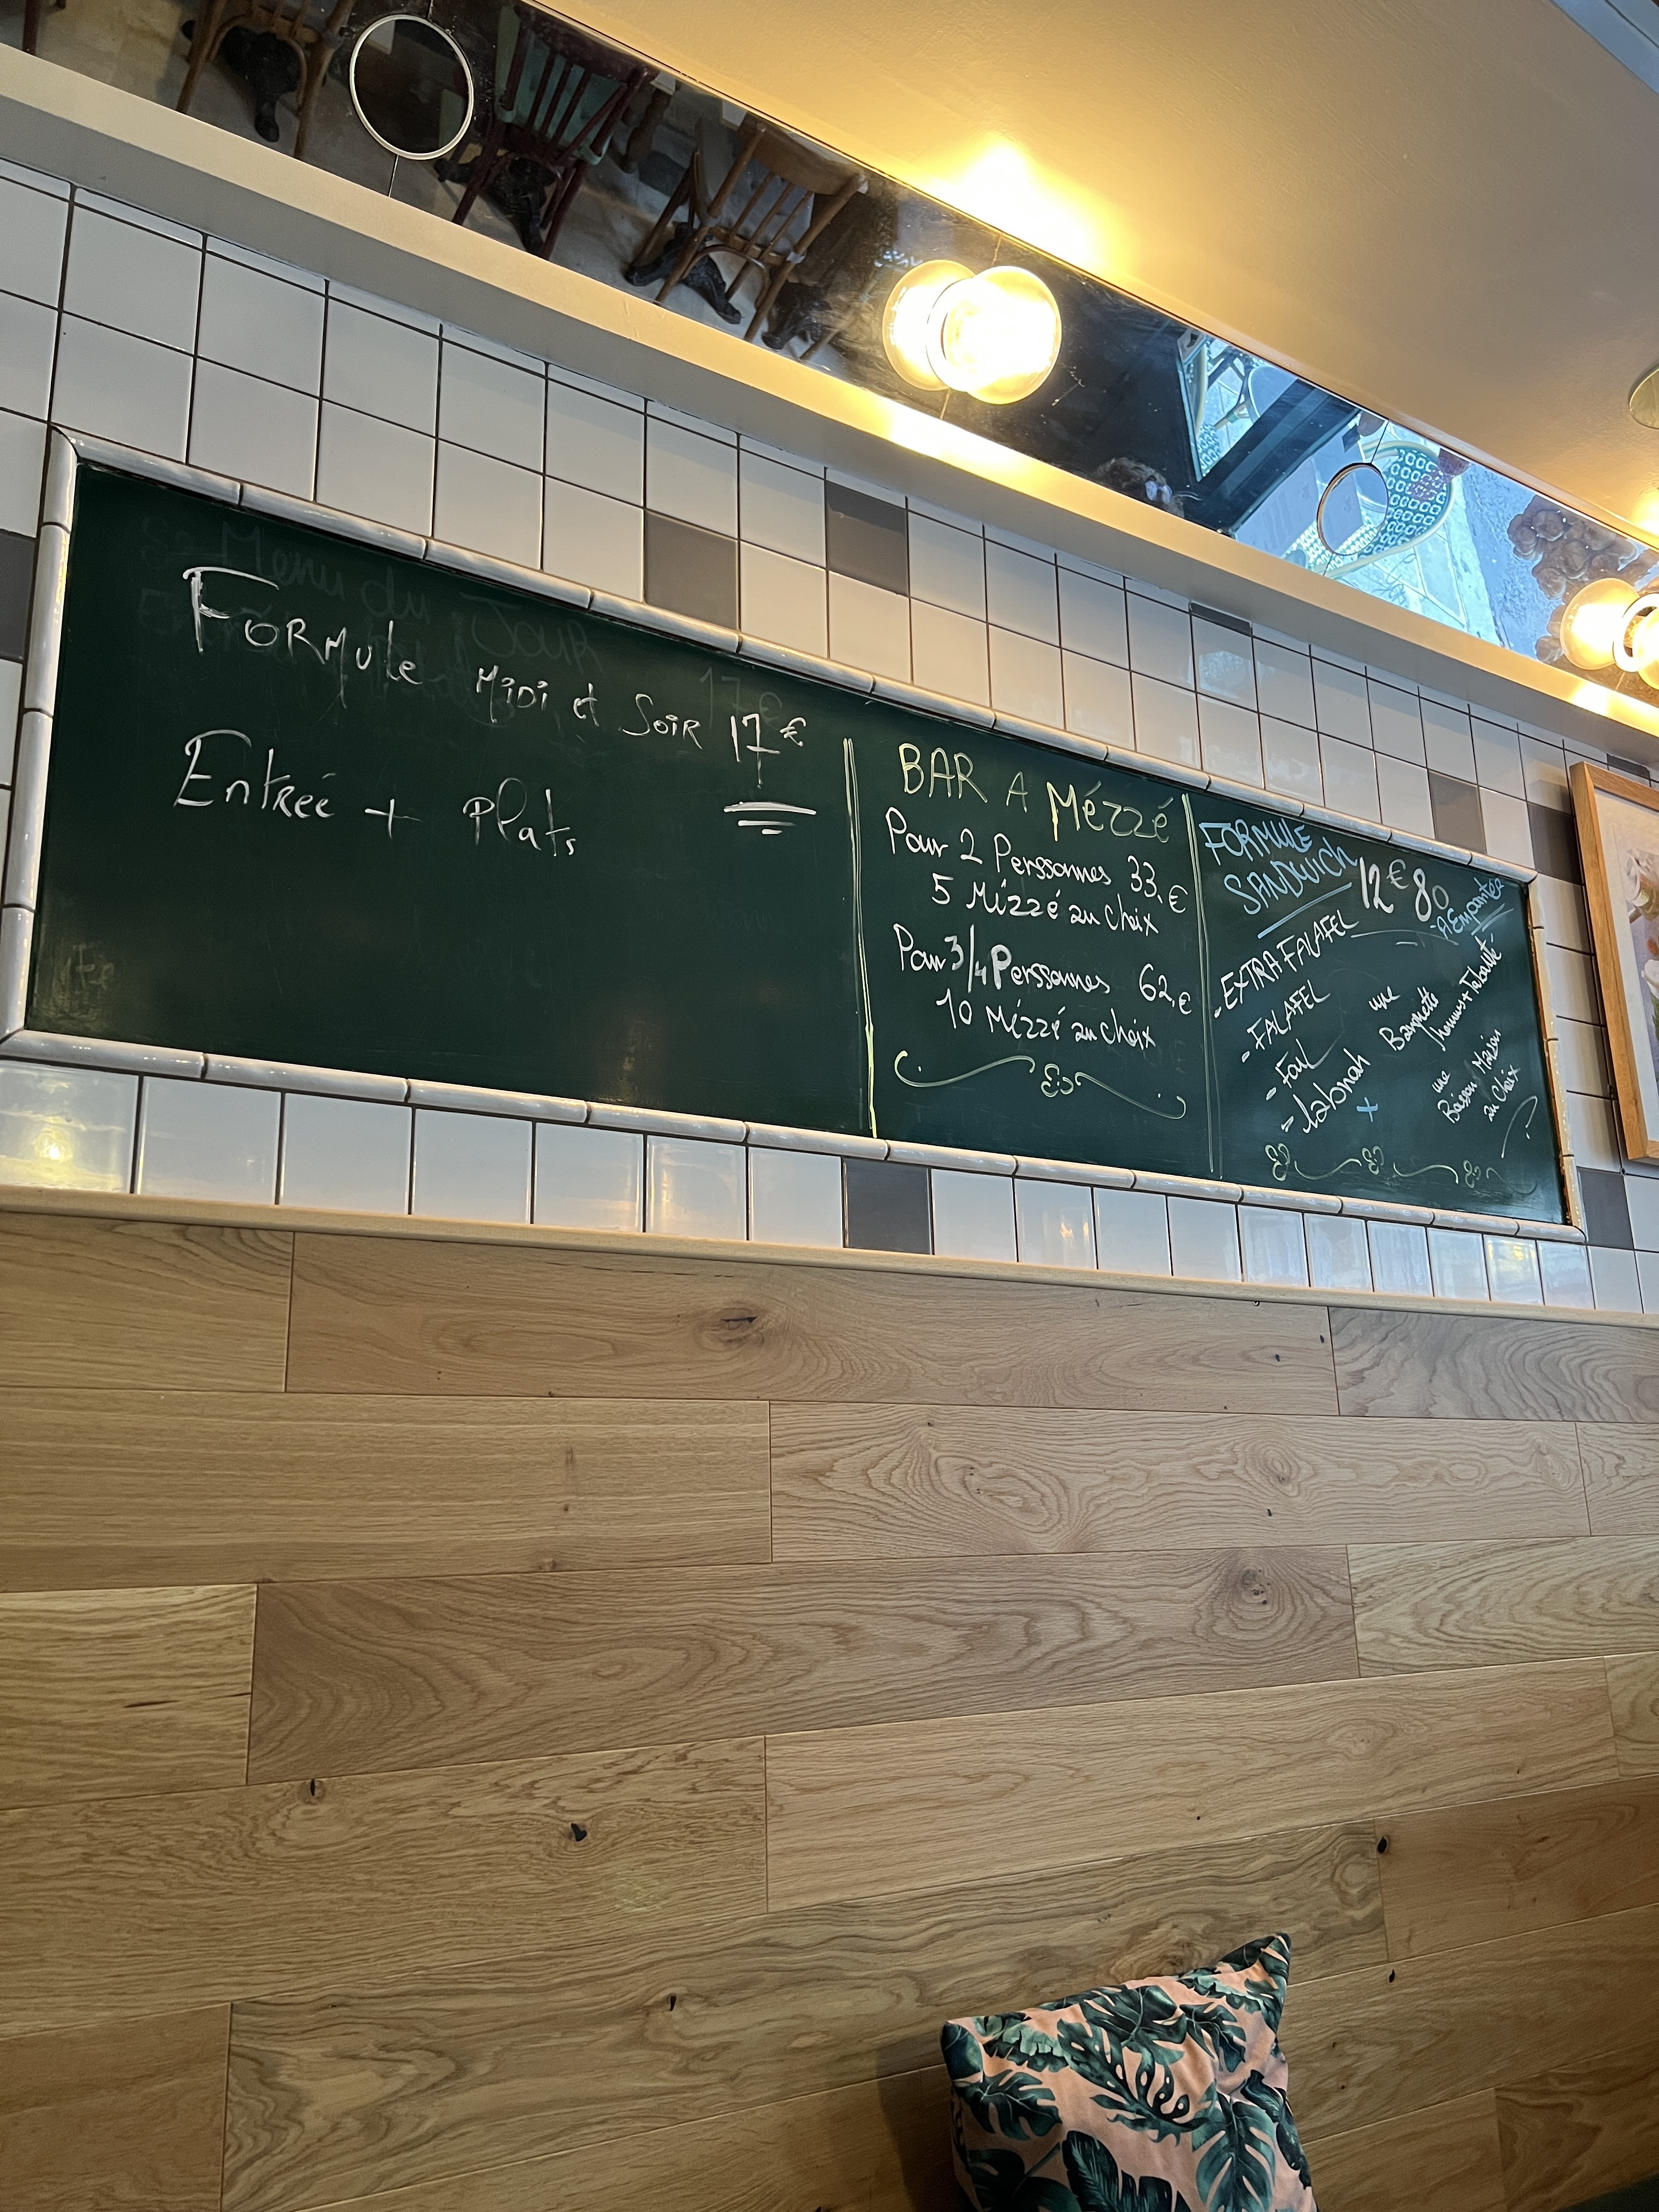 Formule Midi et Soir 17€
Entrée + Plats
BAR A Mézzé
Pour 2 Perssonnes 33,€
5 Mizzé au choix
Pour 3/4 Perssonnes 62,€
10 Mézzé au choix
FORMULE
SANDWich 12€80
- A Emporter
- EXTRA FALAFEL
- FALAFEL
- Foul
- labnah
+
une
Barquette
houmus + Taboulé
une
Boisson Maison
au Choix